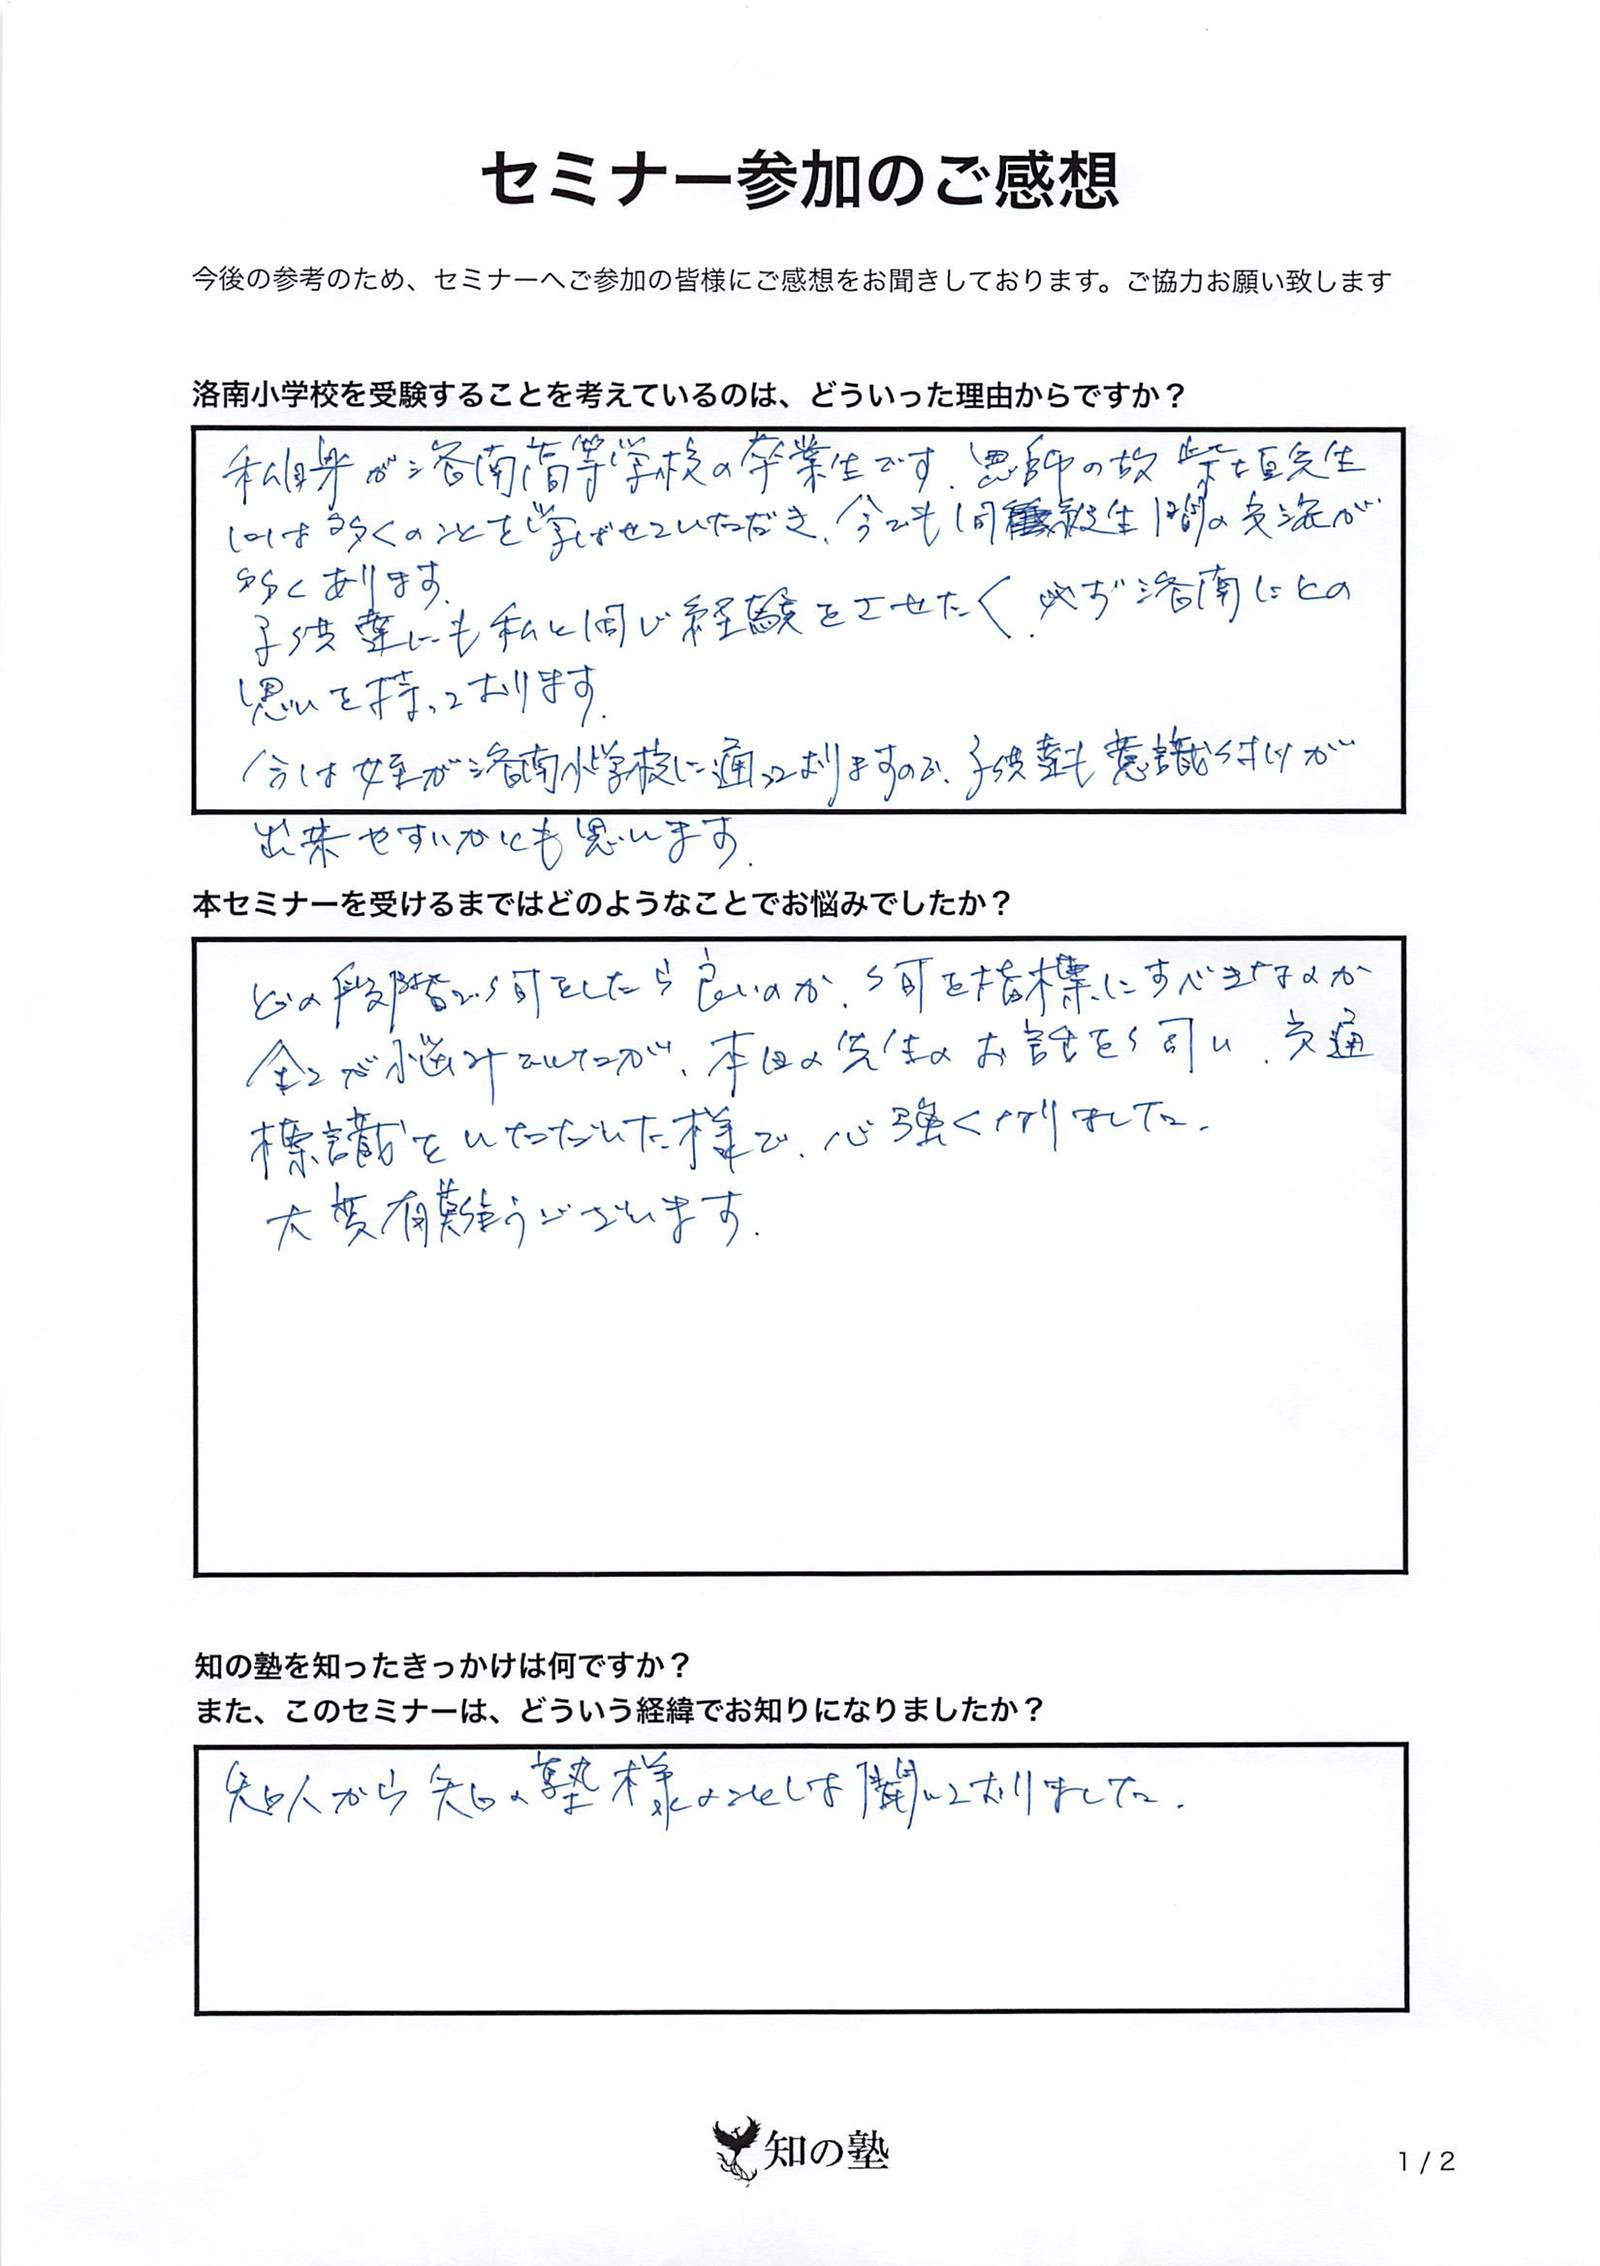 セミナー参加のご感想
今後の参考のため、セミナーへご参加の皆様にご感想をお聞きしております。ご協力お願い致します
洛南小学校を受験することを考えているのは、どういった理由からですか？
私自身が洛南高等学校の卒業生です。恩師の故 柴垣先生
には多くのことを学ばせていただき、今でも同級生間の交流が
多くあります。
子供達にも私と同じ経験をさせたく、必ず洛南にとの
思いを持っております。
今は姪が洛南小学校に通っておりますので、子供達も意識付けが
出来やすいかとも思います。
本セミナーを受けるまではどのようなことでお悩みでしたか？
どの段階で何をしたら良いのか、何を指標にすべきなのか
全てが悩みでしたが、本日の先生のお話を伺い、交通
標識をいただいた様で、心強くなりました。
大変有難うございます。
知の塾を知ったきっかけは何ですか？
また、このセミナーは、どういう経緯でお知りになりましたか？
知人から知の塾様のことは聞いておりました。
知の塾
1 / 2